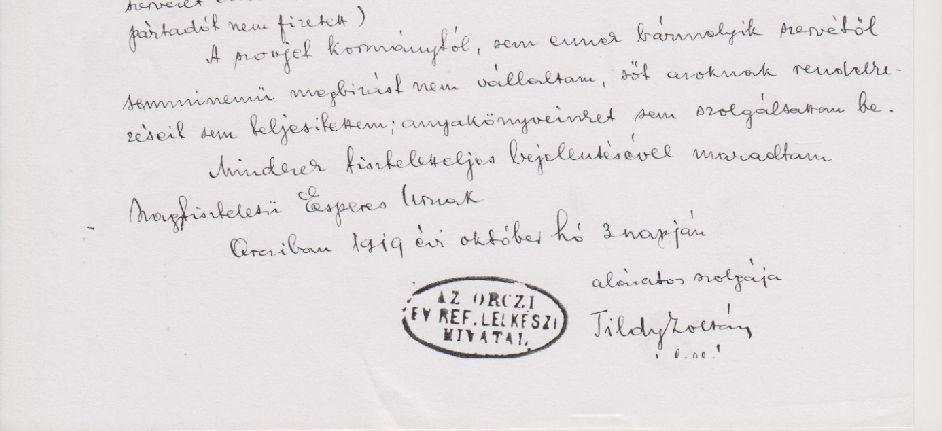 pártadót nem fizetett)
A szovjet kormánytól, sem ennek bármelyik szervétől
semminemü megbizást nem vállaltam, sőt azoknak rendelke-
zéseit sem teljesitettem; anyakönyveinket sem szolgáltattam be.
Mindezek tiszteletteljes bejelentésével maradtam
Nagytiszteletü Esperes Urnak
Orcziban 1919 évi október hó 3 napján
alázatos szolgája
AZ ORCZI
EV REF. LELKÉSZI
HIVATAL.
Tildy Zoltán